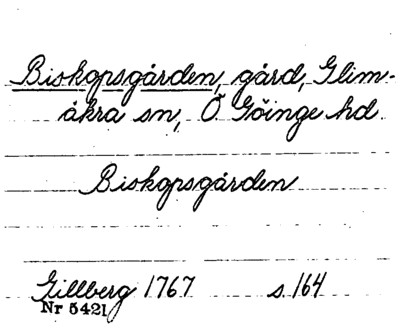 Biskopsgården, gård, Glim-
åkra sn, Ö. Göinge hd
Biskopsgården
Gillberg 1767 s. 164
Nr 5421